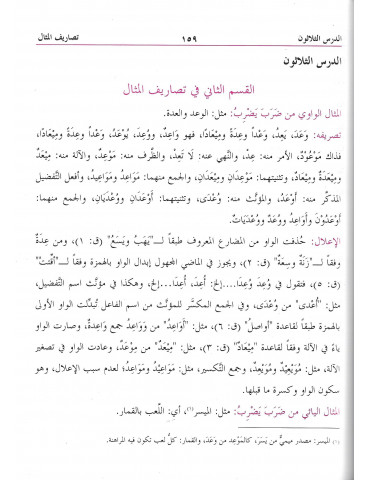 الدرس الثلاثون ١٥٩ تصاريف المثال
الدرس الثلاثون
القسم الثاني في تصاريف المثال
المثال الواوي من ضَرَبَ يَضْرِبُ: مثل: الوعد والعدة.
تصريفه: وَعَدَ، يَعِدُ، وَعْداً وعِدَةً ومِيْعَادًا، فهو واعِدٌ، ووُعِدَ، يُوْعَدُ، وَعْداً وعِدَةً ومِيْعَادًا،
فذاك مَوْعُوْدٌ، الأمر منه: عِدْ، والنَّهي عنه: لَا تَعِدْ، والظّرف منه: مَوْعِدٌ، والآلة منه: مِيْعَدٌ
ومِيْعَدَةٌ ومِيْعَادٌ، وتثنيتهما: مَوْعِدَانِ ومِيْعَدَانِ، والجمع منهما: مَوَاعِدُ ومَوَاعِيدُ، وأفعل التّفضيل
المذكّر منه: أَوْعَدُ، والمؤنّث منه: وُعْدَى، وتثنيتهما: أَوْعَدَانِ ووُعْدَيَانِ، والجمع منهما:
أَوْعَدُوْنَ وأَوَاعِدُ ووُعَدٌ ووُعْدَيَاتٌ.
الإعلال: حُذفت الواو من المضارع المعروف طبقاً لـ"يَهَبُ ويَسَعُ" (ق: ١)، ومن عِدَة
وفقاً لـ"زِنَةٌ وسِعَةٌ" (ق: ٢)، ويجوز في الماضي المجهول إبدال الواو بالهمزة وفقاً لـ"أُقِّتَتْ"
(ق: ٥)، فتقول في وُعِدَ وُعِدَا....إلخ: أُعِدَ، أُعِدَا...إلخ، وهكذا في مؤنّث اسم التّفضيل،
مثل: "أُعْدى" من وُعْدَى، وفي الجمع المكسّر للمؤنّث من اسم الفاعل تُبدّلت الواو الأولى
بالهمزة طبقاً لقاعدة "أَواصِلُ" (ق: ٦)، مثل: "أَوَاعِدُ" من وَوَاعِدُ جمع وَاعِدَةٌ، وصارت الواو
ياءً في الآلة وفقاً لقاعدة "مِيْعَادٌ" (ق: ٣)، مثل: "مِيْعَدٌ" من مِوْعَدٌ، وعادت الواو في تصغير
الآلة، مثل: مُوَيْعِيْدٌ ومُوَيْعِدٌ، وجمع التّكسير، مثل: مَوَاعِيْدُ ومَوَاعِدُ؛ لعدم سبب الإعلال، وهو
سكون الواو وكسرة ما قبلها.
المثال اليائي من ضَرَبَ يَضْرِبُ: مثل: الميسر(١)، أي: اللّعب بالقمار.
(١) الميسر: مصدر ميميٌّ من يَسَرَ، كالمَوْعِد من وَعَدَ، والقمار: كلّ لعب تكون فيه المراهنة.